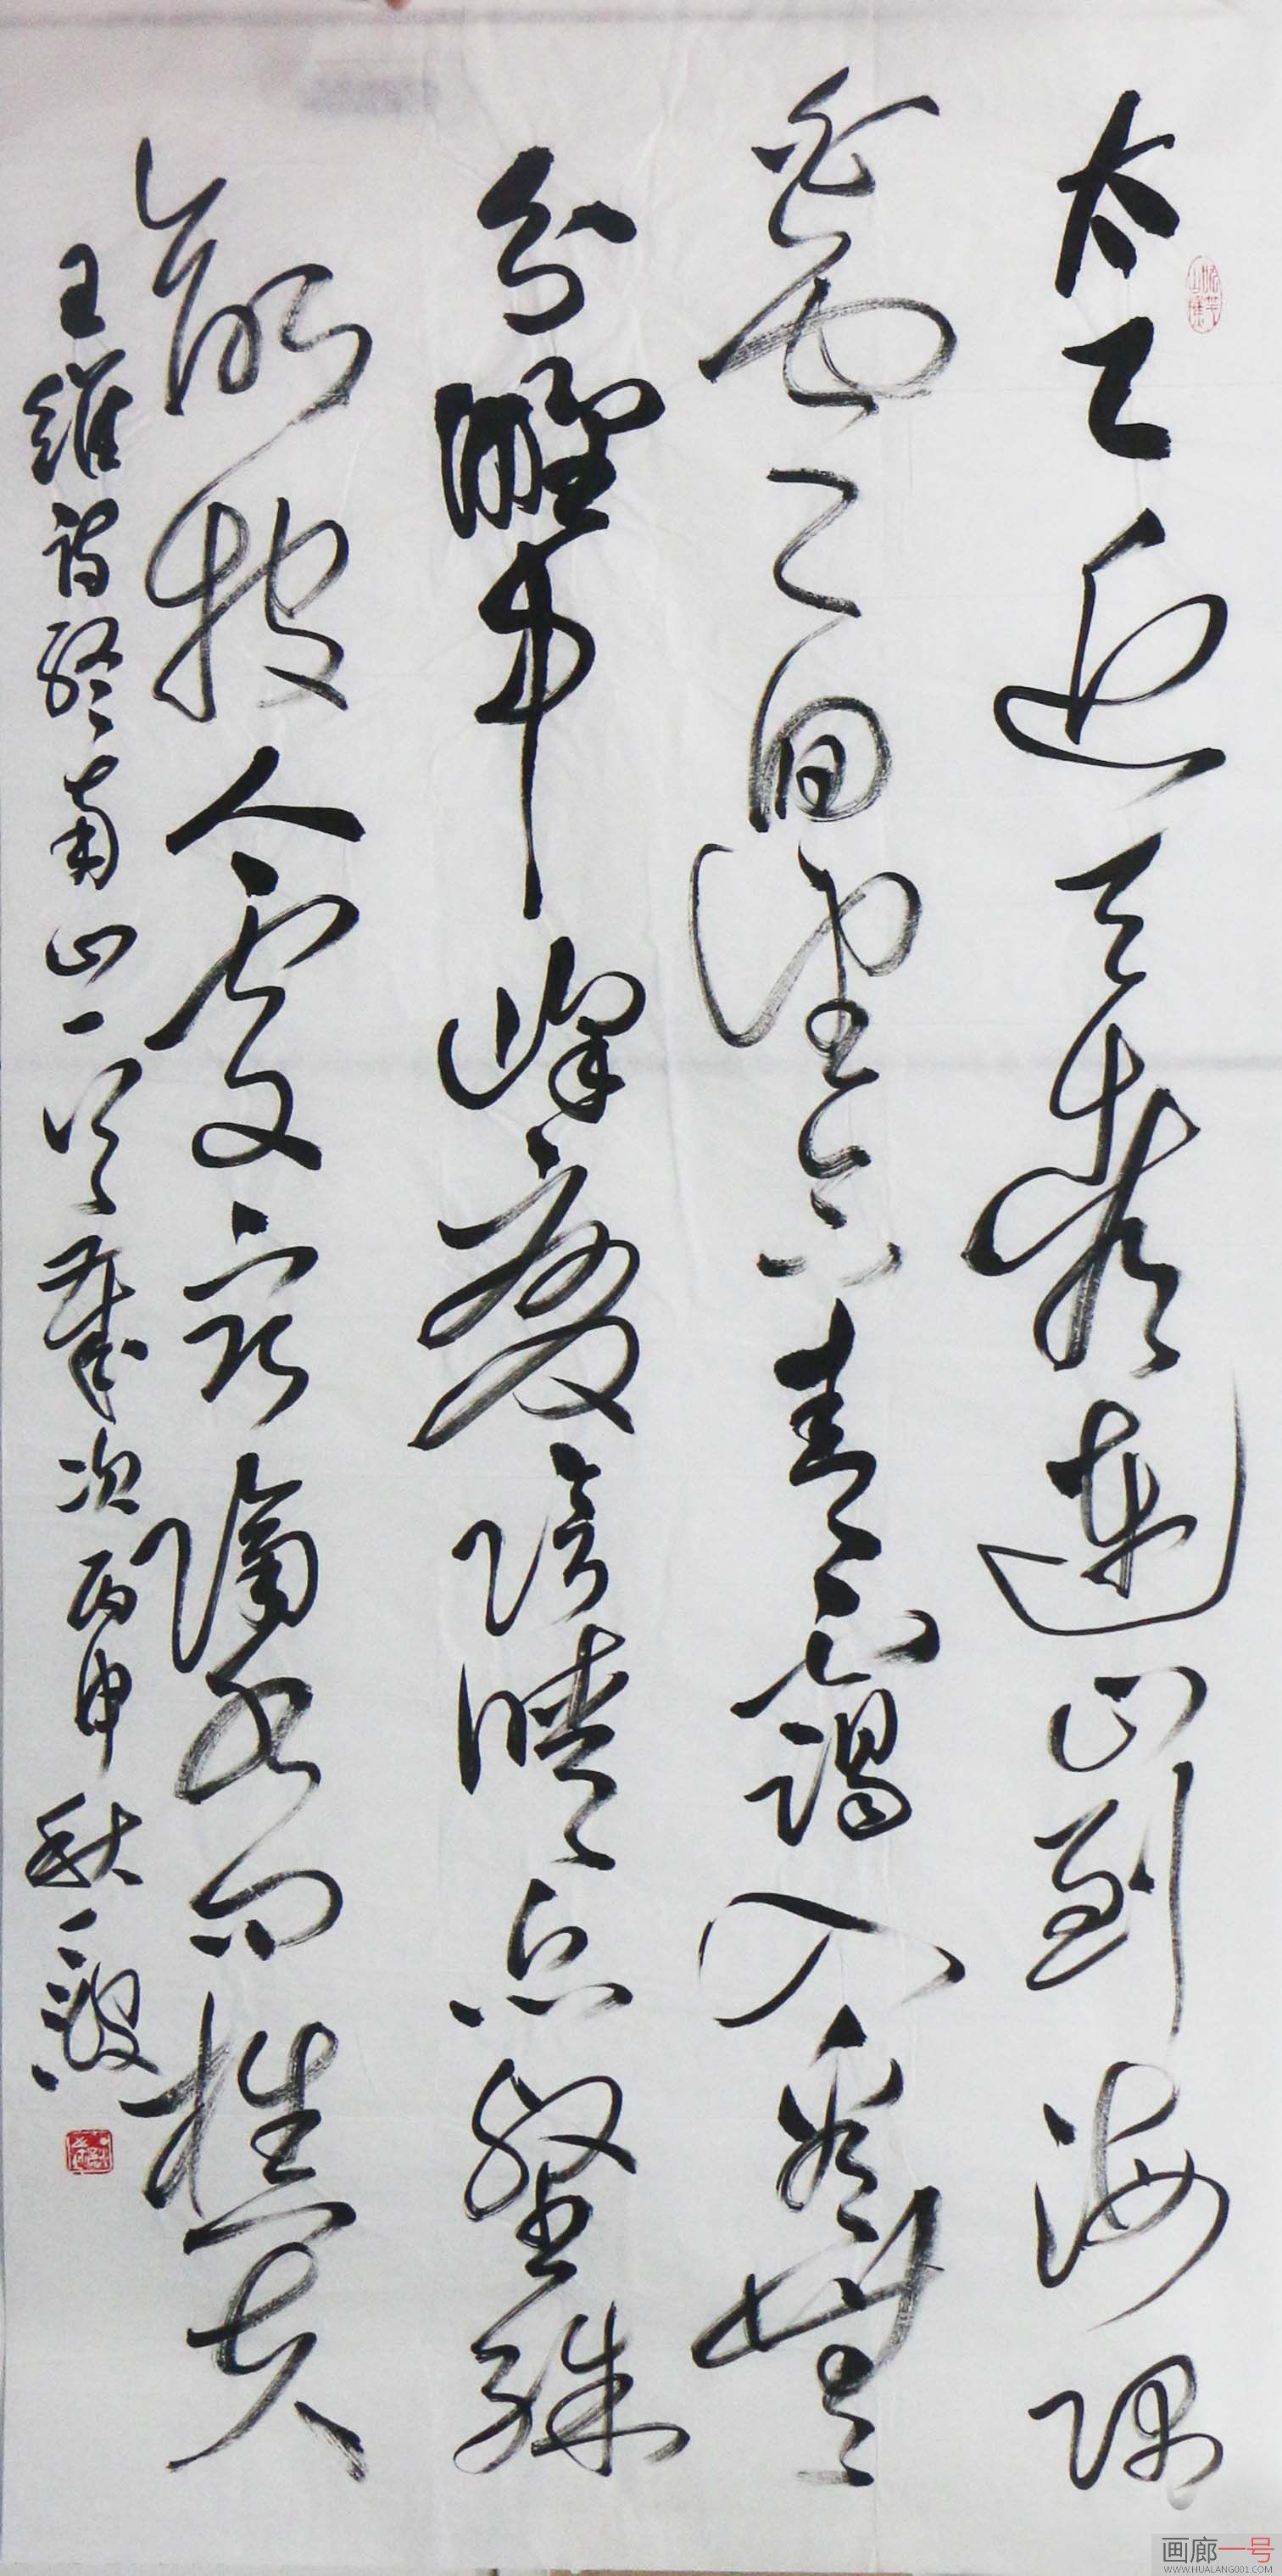 太乙近天都連山到海隅
白雲回望合青靄入看無
分野中峰變陰晴眾壑殊
欲投人處宿隔水問樵夫
王維詩終南山一首歲次丙申秋
画廊一号
WWW.HUALANG001.COM